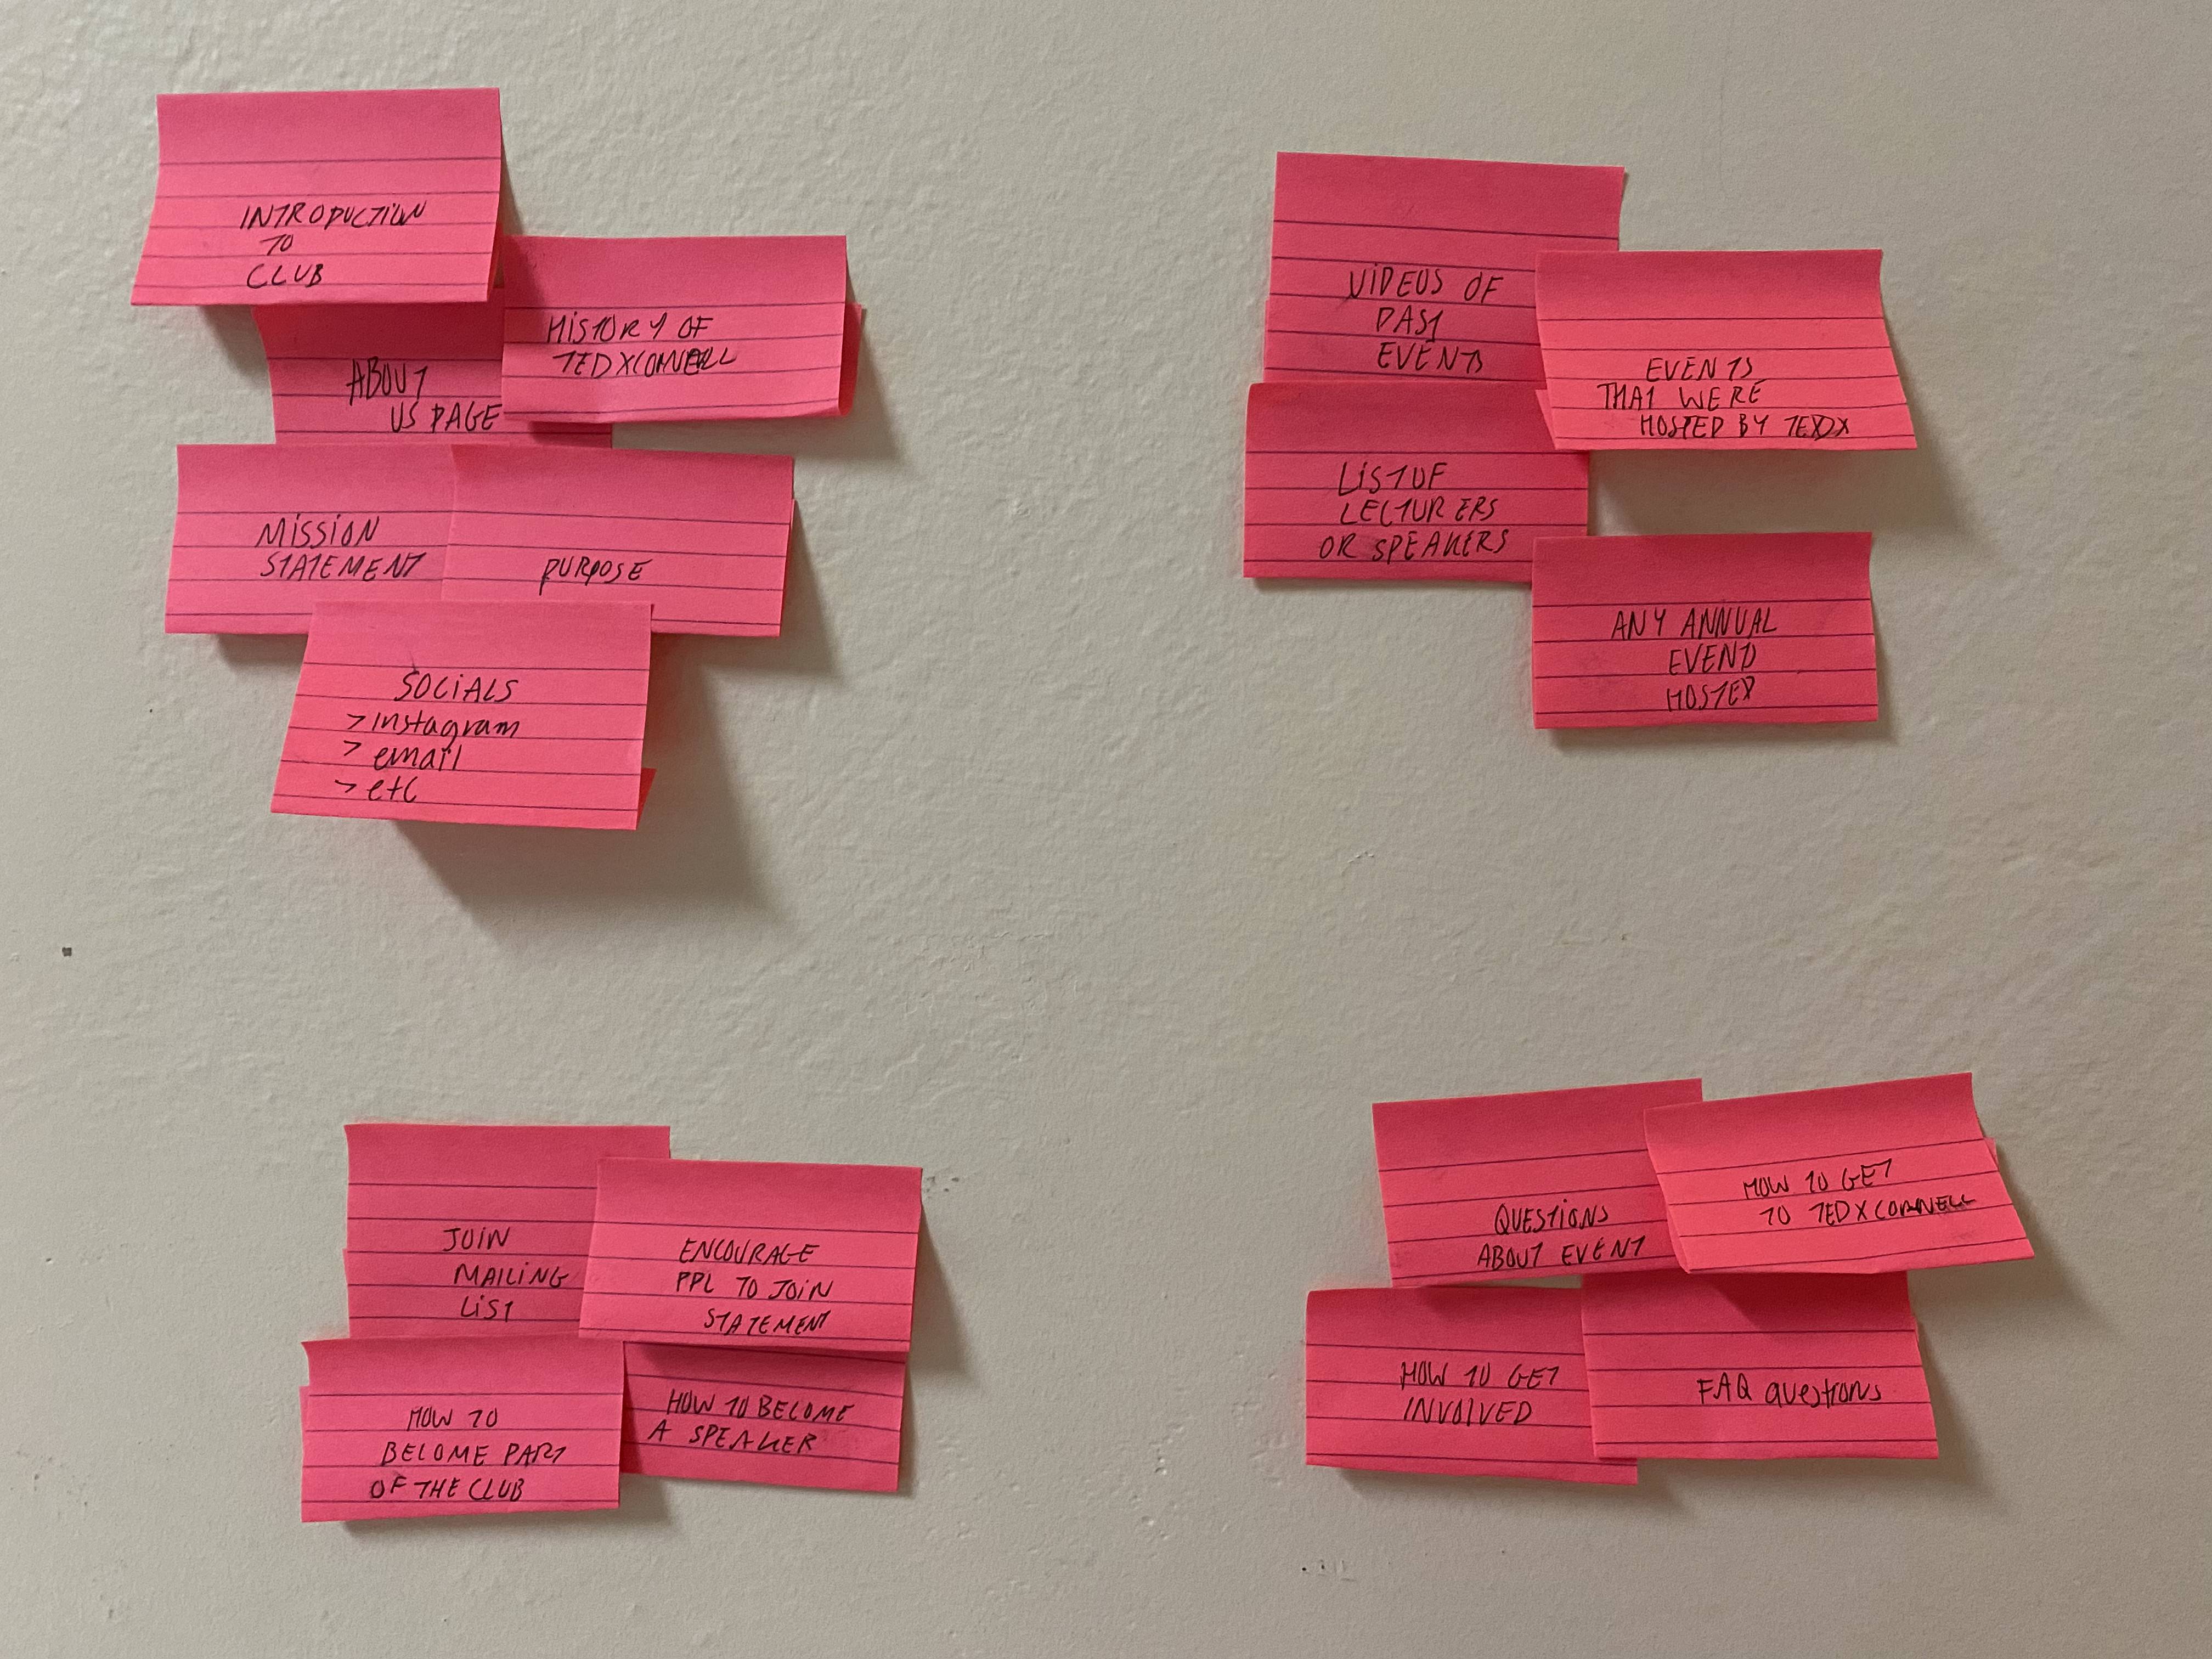 INTRODUCTION
TO
CLUB
HISTORY OF
TEDXCORNELL
ABOUT
US PAGE
MISSION
STATEMENT
PURPOSE
SOCIALS
> instagram
> email
> etc
VIDEOS OF
PAST
EVENTS
EVENTS
THAT WERE
HOSTED BY TEDX
LIST OF
LECTURERS
OR SPEAKERS
ANY ANNUAL
EVENTS
HOSTED
JOIN
MAILING
LIST
ENCOURAGE
PPL TO JOIN
STATEMENT
HOW TO
BECOME PART
OF THE CLUB
HOW TO BECOME
A SPEAKER
QUESTIONS
ABOUT EVENT
HOW TO GET
TO TEDXCORNELL
HOW TO GET
INVOLVED
FAQ questions